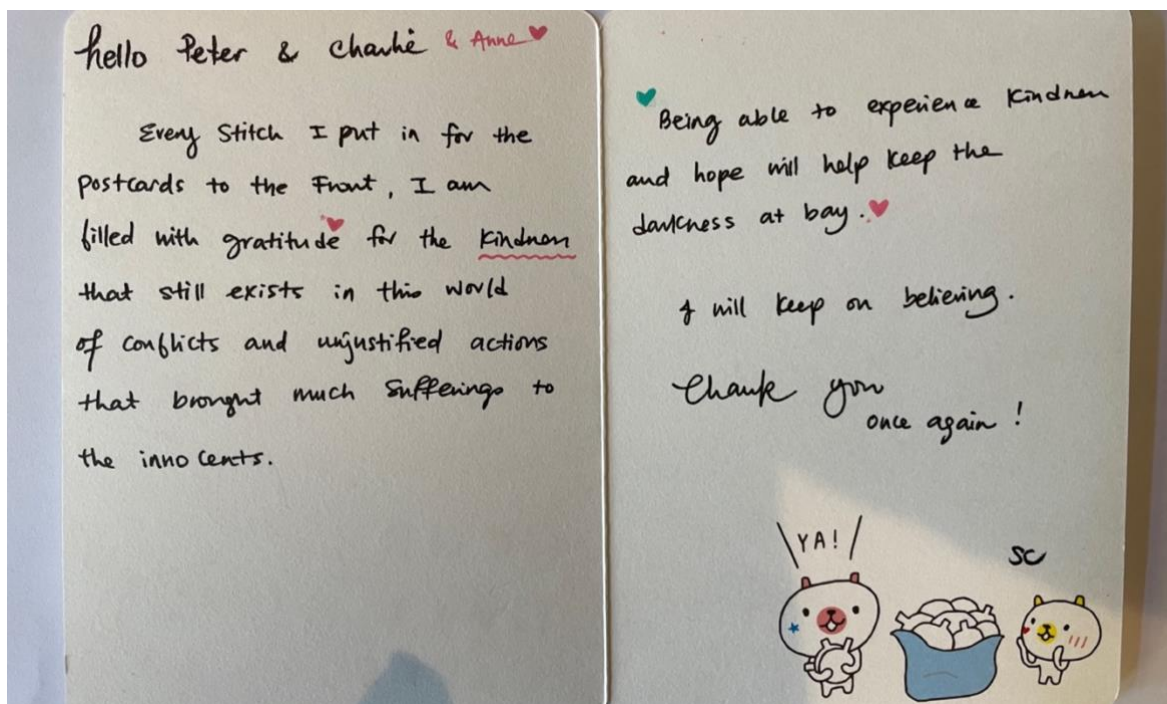 hello Peter & Charlie & Anne
Every Stitch I put in for the
postcards to the Front, I am
filled with gratitude for the kindness
that still exists in this world
of conflicts and unjustified actions
that brought much sufferings to
the innocents.
Being able to experience kindness
and hope will help keep the
darkness at bay.
I will keep on believing.
Thank you
once again!
YA!
SC